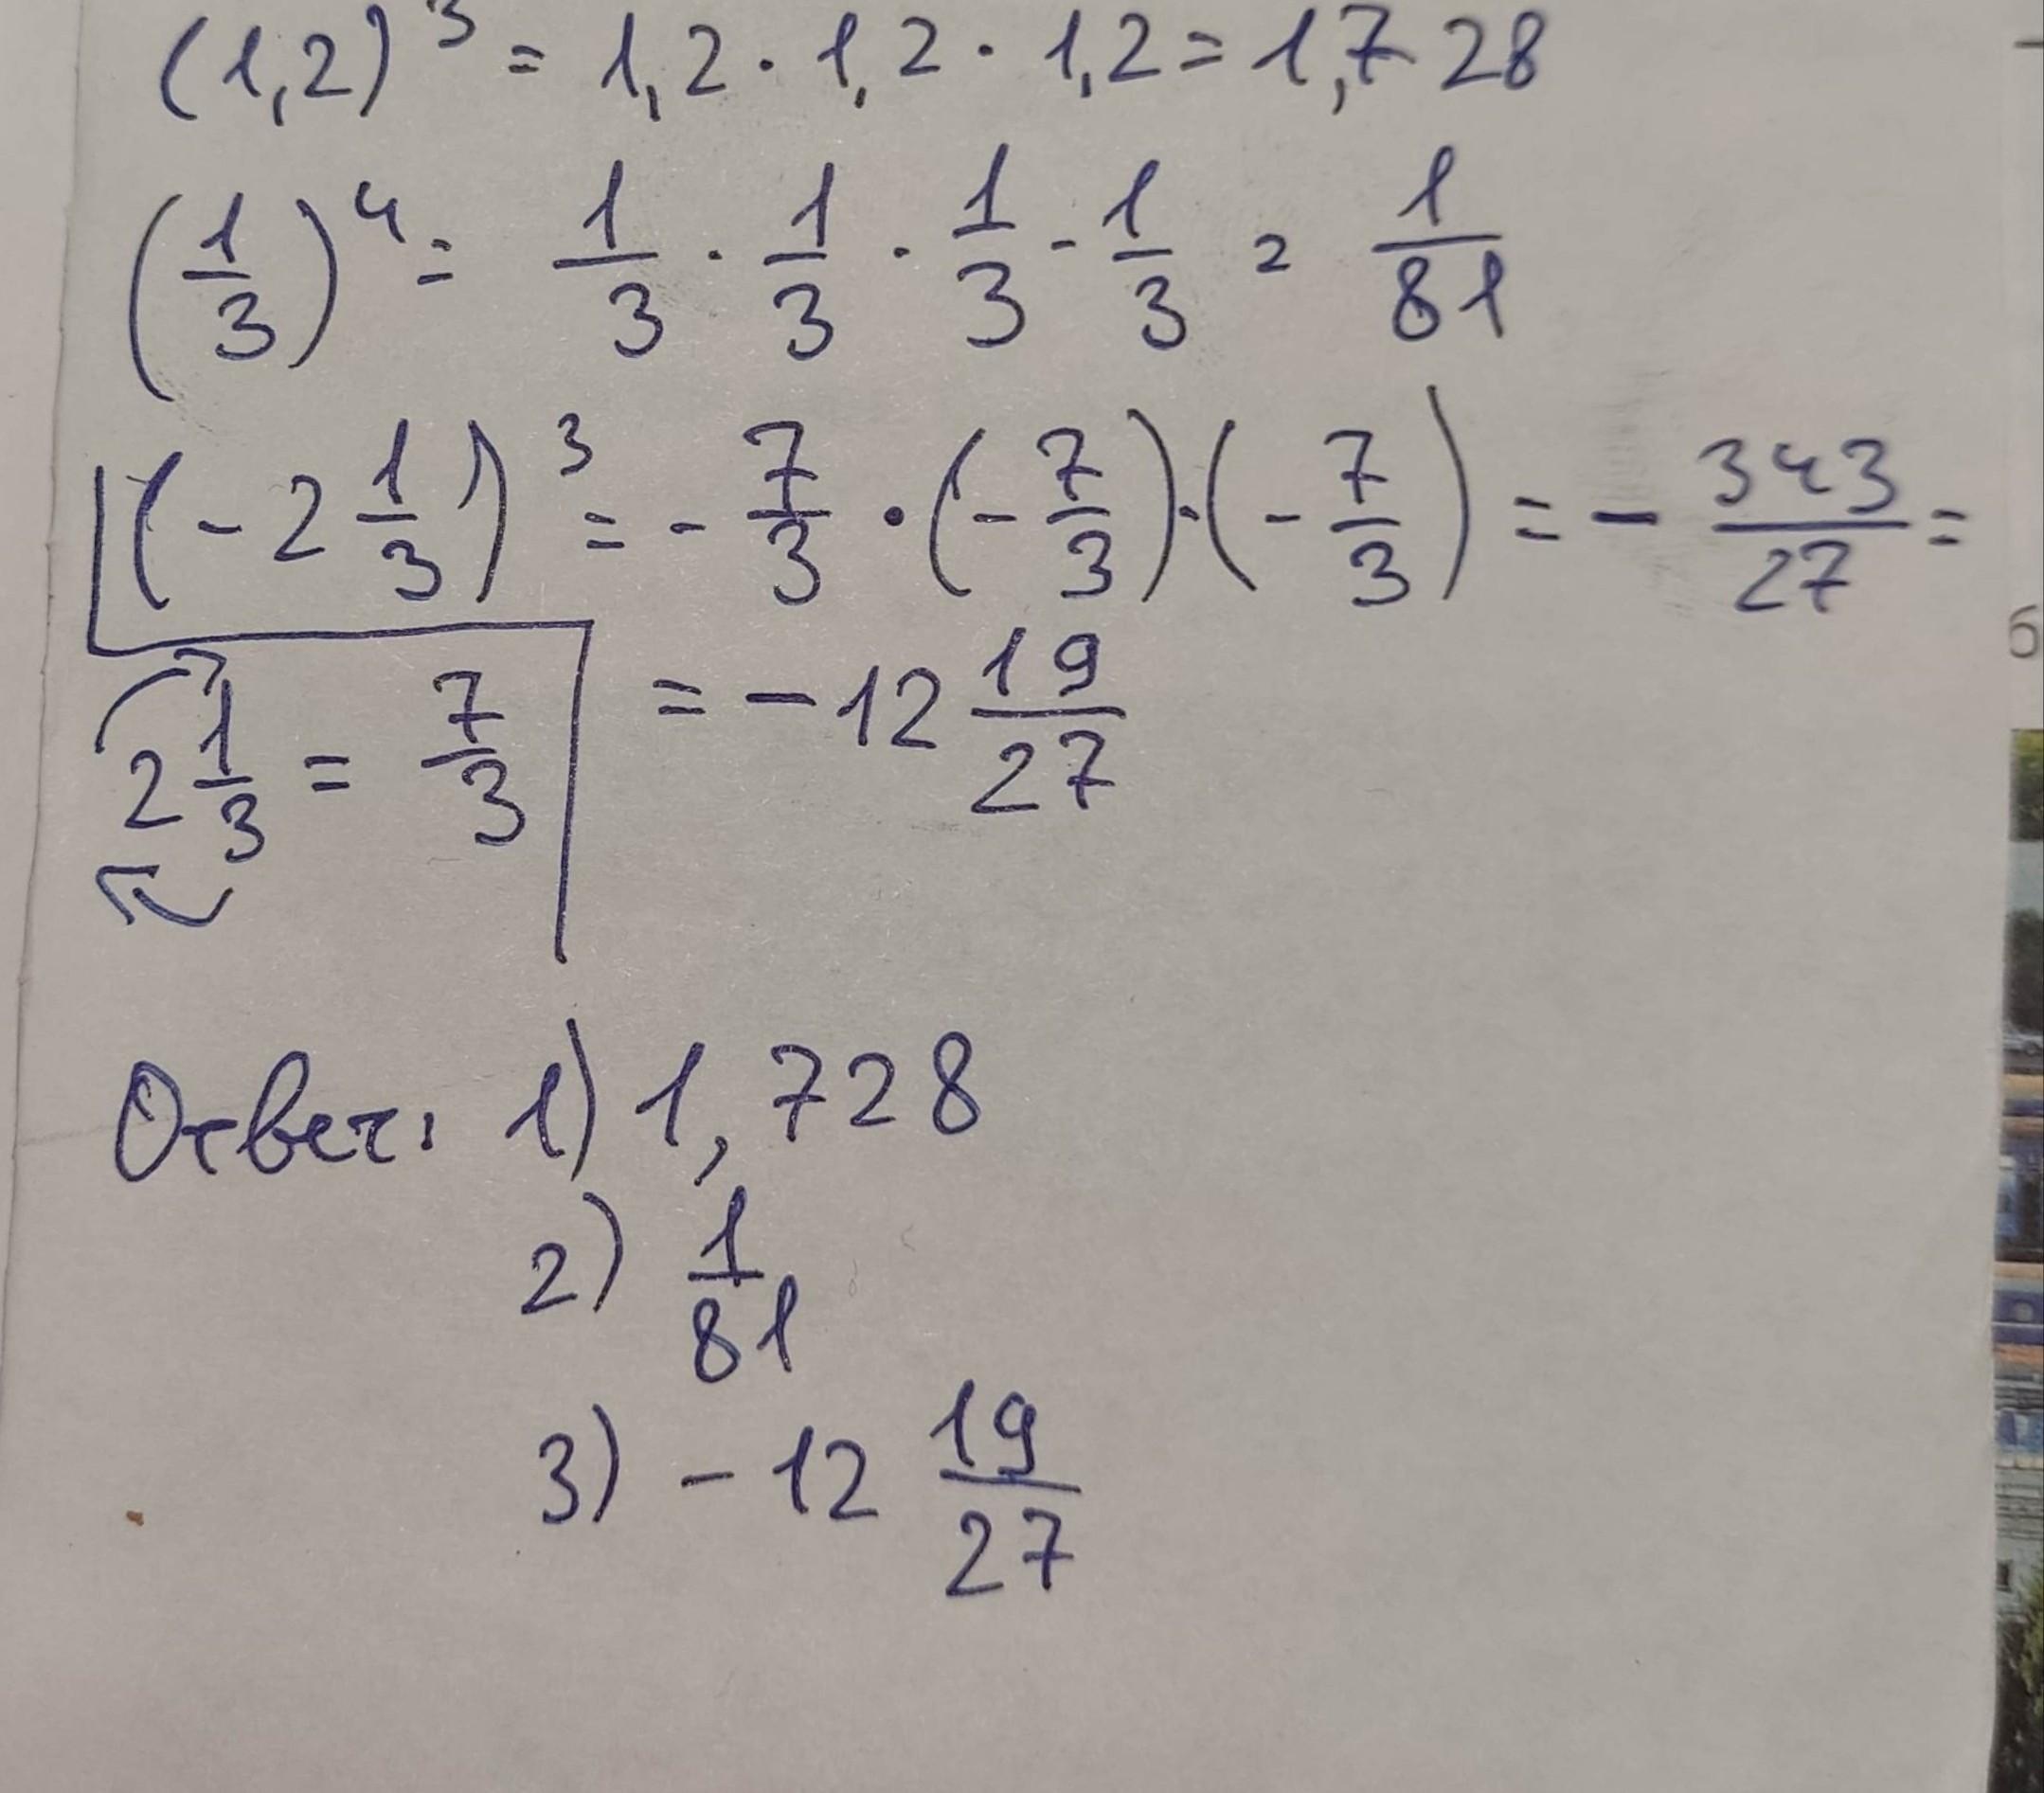 (1,2)³ = 1,2 · 1,2 · 1,2 = 1,728
(1/3)⁴ = 1/3 · 1/3 · 1/3 · 1/3 = 1/81
(-2 1/3)³ = - 7/3 · (- 7/3) · (- 7/3) = - 343/27 =
2 1/3 = 7/3
= -12 19/27
Ответ: 1) 1,728
2) 1/81
3) -12 19/27
б